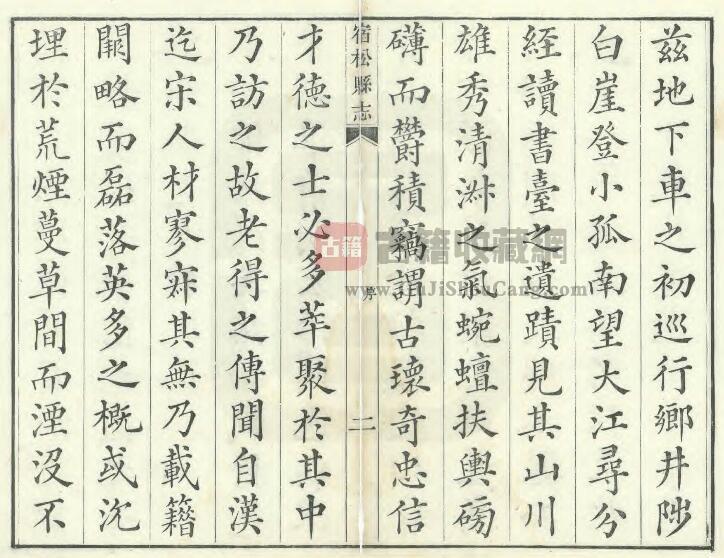 茲地下車之初巡行鄉井陟
白崖登小孤南望大江尋分
經讀書臺之遺蹟見其山川
雄秀清淑之氣蜿蟺扶輿磅
礴而欝積竊謂古瓌奇忠信
宿松縣志
序
二
才德之士必多萃聚於其中
乃訪之故老得之傳聞自漢
迄宋人材寥寂其無乃載籍
闕略而磊落英多之概或沉
埋於荒煙蔓草間而湮沒不
古籍
古籍收藏網
www.GuJiShouCang.com